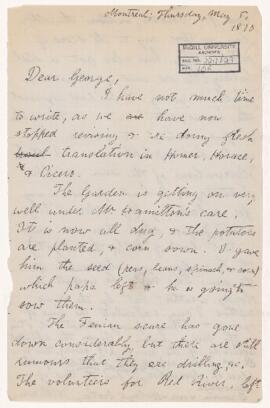 Montreal; Thursday, May 5,
1870
McGILL UNIVERSITY
ARCHIVES
ACC. NO.
REF.
Dear George,
I have not much time
to write, as we are have now
stopped reviewing & are doing fresh
translation in Homer, Horace,
& Cicero.
The Garden is getting on very
well under Mr Hamilton's care.
It is now all dug, & the potatoes
are planted, & corn sown. I gave
him the seed (peas, beans, spinach, & corn)
which papa left & he is going to
sow them.
The Fenian scare has gone
down considerably, but there are still
rumours that they are drilling, &c.
The volunteers for Red River, left